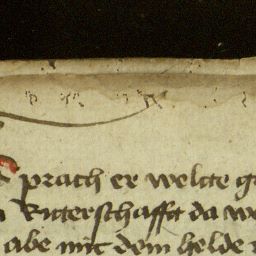 prach er welcte g
Ritterschafft da w
abe mit dem helde